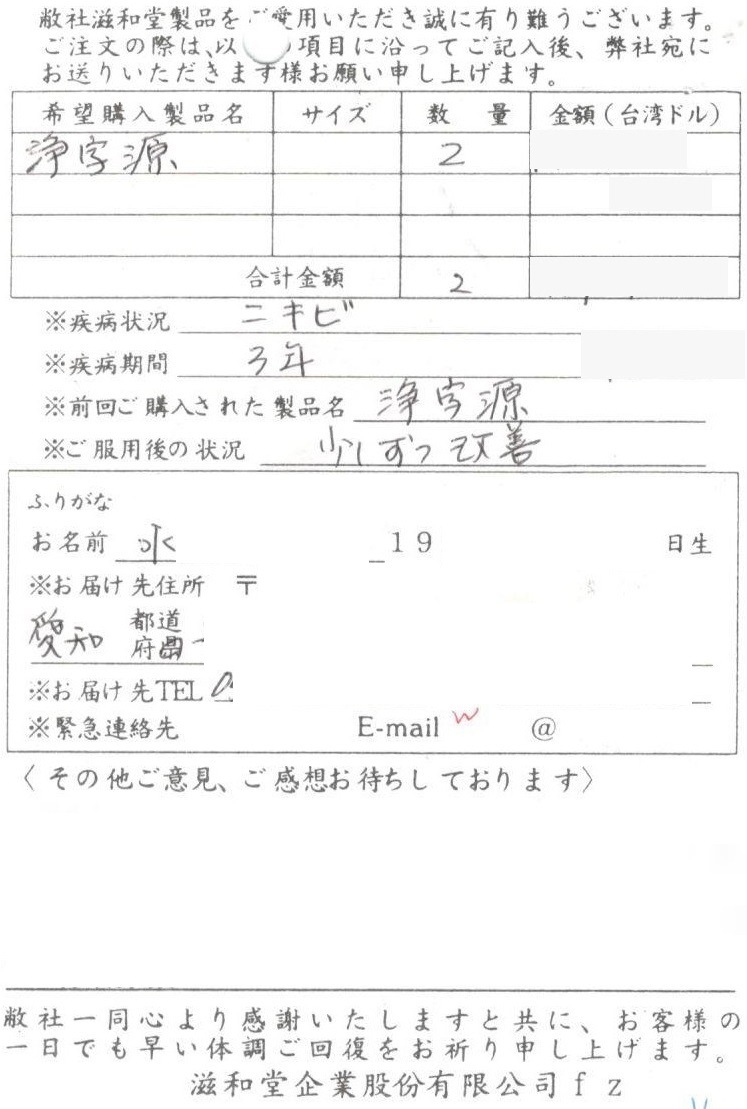 敝社滋和堂製品をご愛用いただき誠に有り難うございます。
ご注文の際は、以 項目に沿ってご記入後、弊社宛に
お送りいただきます様お願い申し上げます。
希望購入製品名 サイズ 数 量 金額(台湾ドル)
浄字源 2
合計金額 2
※疾病状況 ニキビ
※疾病期間 3年
※前回ご購入された製品名 浄字源
※ご服用後の状況 少しずつ改善
ふりがな
お名前 水 _19 日生
※お届け先住所 〒
愛知 都道
府県
※お届け先TEL 0
※緊急連絡先 E-mail @
〈その他ご意見、ご感想お待ちしております〉
敝社一同心より感謝いたしますと共に、お客様の
一日でも早い体調ご回復をお祈り申し上げます。
滋和堂企業股份有限公司fz